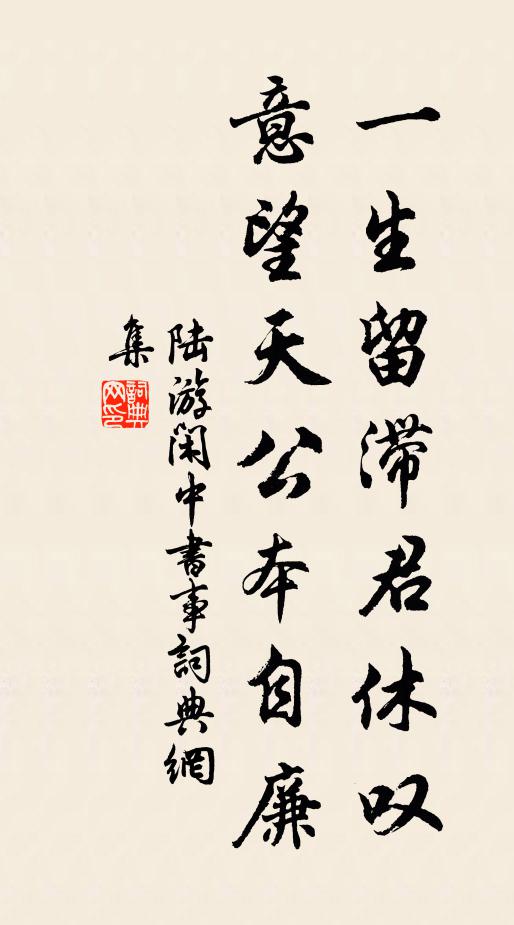 一生留滞君休叹
意望天公本自廉
陆游闲中書事詞典網
集
詞典网印